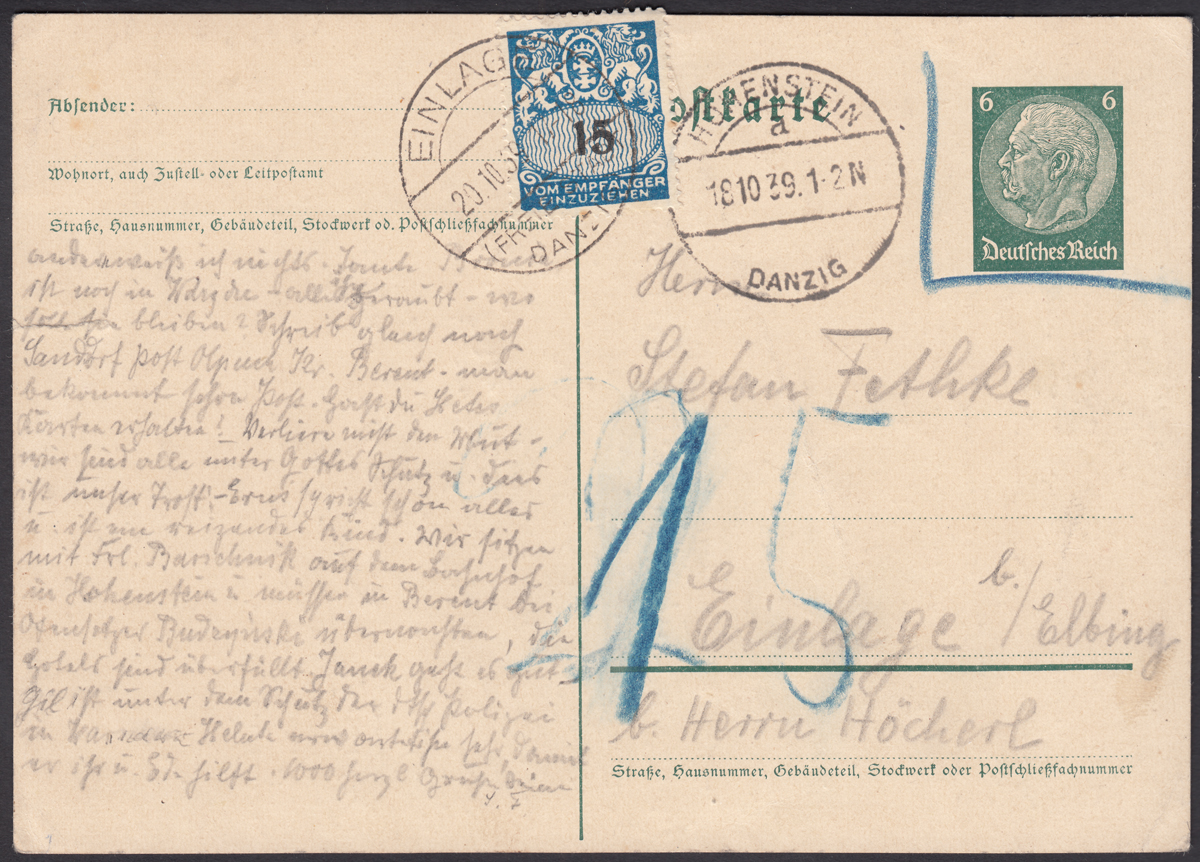 Absender:
Wohnort, auch Zustell- oder Leitpostamt
Straße, Hausnummer, Gebäudeteil, Stockwerk od. Postschließfachnummer
EINLAGE
20.10.39
(FREIE
DANZIG
15
VOM EMPFÄNGER
EINZUZIEHEN
Postkarte
HOHENSTEIN
a
18.10.39.1-2N
DANZIG
6 6
Deutsches Reich
weiß ich nichts. Tante
ist noch in – alles geraubt – wo
bleiben? Schreib gleich nach
Sandorf Post Kr. Berent – man
bekommt schon Post. Hast du
Karten erhalten? – Verliere nicht den Mut –
wir sind alle unter Gottes Schutz u. dies
ist unser Trost! – spricht schon alles
u. ist ein reizendes Kind. Wir sitzen
mit Frl. Barschnik auf dem Bahnhof
in Hohenstein u. müssen in Berent bei
Ofensetzer übernachten, die
Hotels sind überfüllt. Janek geht es gut
Gil ist unter dem Schutz der Polizei
in
er ihr u. hilft. 1000 herzl Grüße
Herrn
Stefan Fethke
Einlage b./Elbing
b. Herrn Höcherl
15
Straße, Hausnummer, Gebäudeteil, Stockwerk oder Postschließfachnummer